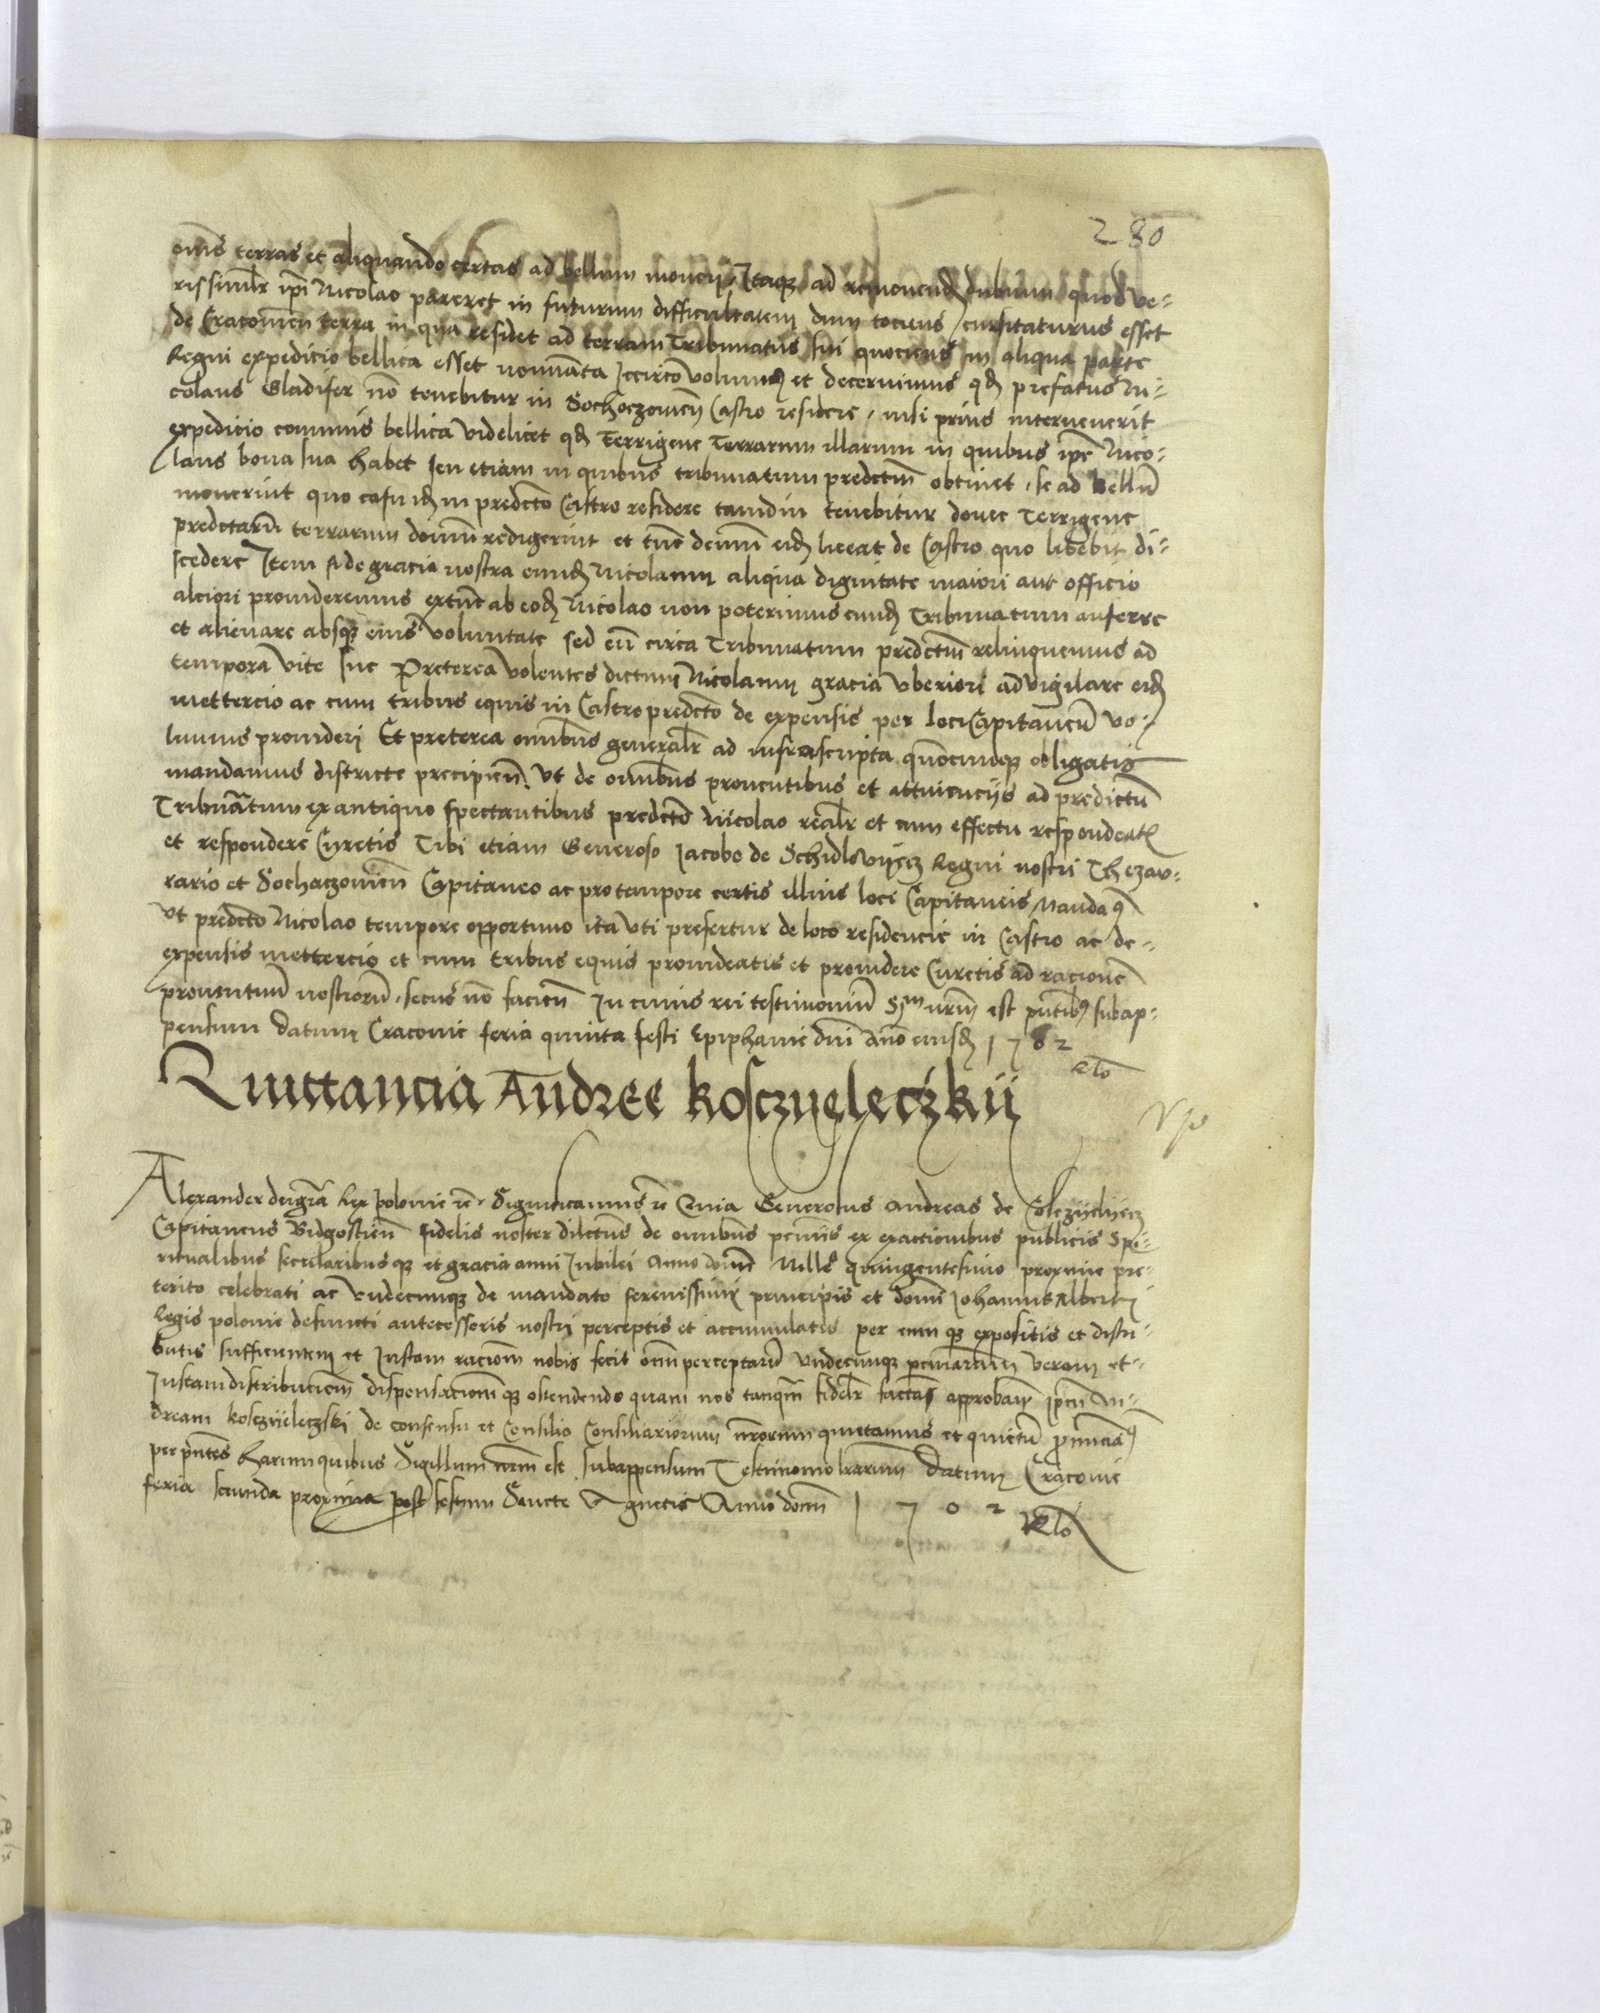 280
om̅s terras et aliquando certas ad bellum moneri Itaque ad removend dubium quod ve-
rissimilr ipi Nicolao pareret in futurum difficultatem dum tociens cursitaturus esset
de Cracovien terra in qua residet ad terram Tribunatus sui quociens in aliqua parte
Regni expedicio bellica esset Iccirco volumus et decernimus qd prefatus Ni-
colaus Gladifer no tenebitur in Sochaczovien Castro residere, nisi prius intervenerit
expedicio communis bellica videlicet qd Terrigene Terrarum illarum in quibus ipe Nico-
laus bona sua habet seu etiam in quibus tribunatum predctm obtinet, se ad bellu
moverint quo casu id in predcto Castro residere tamdiu tenebitur donec Terrigene
predctaru terrarum domu redigerint et tuc demu eid liceat de Castro quo libebit di-
scedere Item si de gracia nostra eund Nicolaum aliqua dignitate maiori aut officio
alciori provideremus extuc ab eod Nicolao non poterimus eund Tribunatum auferre
et alienare absque eius voluntate sed eu circa Tribunatum predctm relinquemus ad
tempora vite sue Preterea volentes dictum Nicolaum gracia uberiori advigilare eid
mettercio ac cum tribus equis in Castro predcto de expensis per loci Capitaneu vo-
lumus provideri Et preterea omibus generalr ad infrascripta quocunque obligatis
mandamus districte precipien ut de omibus proventibus et attinenciis ad predictu
Tribunatum ex antiquo spectantibus predcto Nicolao realr et cum effectu respondeatis
et respondere Curetis Tibi etiam Generoso Jacobo de Schidloviijecz Regni nostri Thezau-
rario et Sochaczovien Capitaneo ac pro tempore certis illius loci Capitaneis Mandamus
Ut predcto Nicolao tempore opportuno ita uti prefertur de loco residencie in Castro ac de-
expensis mettercio et cum tribus equis provideatis et providere Curetis ad racione
proventuu nostroru, secus no facien In cuius rei testimoniu Sm nrm est pntibus subap-
pensum Datum Cracovie feria quinta festi Epiphanie dni Ano eiusd 1702
Rlo
Quittancia Andree Kosczyeleczkij
Alexander dei gra Rex Polonie rc. Significamus rc Quia Generosus Andreas de Coleziielijecz
Capitaneus Bidgostien fidelis noster dilectus de omibus pecuniis ex exactionibus publicis Spi-
ritualibus secularibusque et gracia anni Jubilei Anno domi Mille quingentesimo proxime pre-
terito celebrati ac undecunque de mandato serenissimi principis et domi Johannis Alberti
Regis polonie defuncti antecessoris nostri perceptis et accumulatis per eumque expositis et distri-
butis sufficientem et Justam raciom nobis fecit omm perceptaru undecunque pecuniarum veram et
Justam distribuciom dispensaciomque ostendendo quam nos tanqm fidelr factas approbam ipm An-
dream koscziieleczski de consensu et Consilio Consiliariorum nrorum quietamus et quietu
per pntes harum quibus Sigillum nrm est subappensum Testimonio lrarum Datum Cracovie
feria secunda proxima post festum Sancte Agnetis Anno domi 1 7 0 2
Rlo